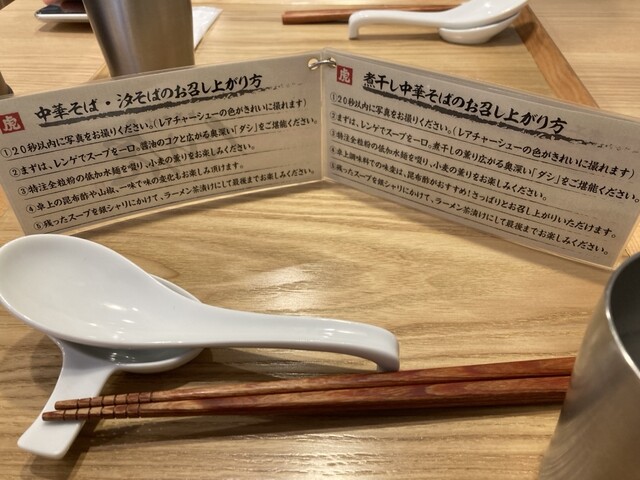 虎
中華そば・汐そばのお召し上がり方
①20秒以内に写真をお撮りください。(レアチャーシューの色がきれいに撮れます)
②まずは、レンゲでスープを一口。醤油のコクと広がる奥深い「ダシ」をご堪能ください。
③特注全粒粉の低加水麺を啜り、小麦の薫りをお楽しみください。
④卓上の昆布酢や山椒、一味で味の変化もお楽しみ頂けます。
⑤残ったスープを銀シャリにかけて、ラーメン茶漬けにして最後までお楽しみください。
虎
煮干し中華そばのお召し上がり方
①20秒以内に写真をお撮りください。(レアチャーシューの色がきれいに撮れます)
②まずは、レンゲでスープを一口。煮干しの薫り広がる奥深い「ダシ」をご堪能ください。
③特注全粒粉の低加水麺を啜り、小麦の薫りをお楽しみください。
④卓上調味料での味変は、昆布酢がおすすめ!さっぱりとお召し上がりいただけます。
⑤残ったスープを銀シャリにかけて、ラーメン茶漬けにして最後までお楽しみください。